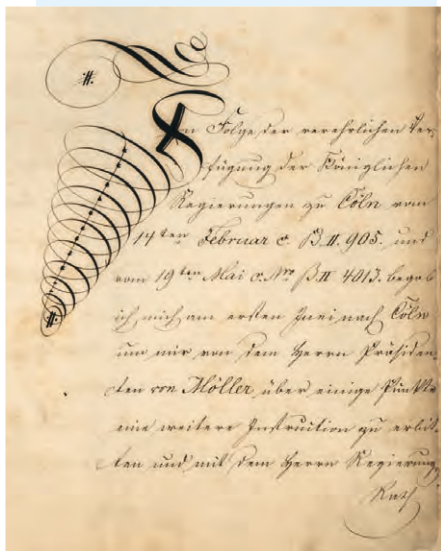 In Folge der verehrlichen Ver-
fügung der Königlichen
Regierungen zu Cöln vom
14ten Februar c. B. II. 905. und
vom 19ten Mai c. No B II 4013. begab
ich mich am ersten Juni nach Cöln
um mir von dem Herrn Präsiden-
ten von Möller über einige Punkte
eine weitere Instruction zu erbit-
ten und mit dem Herrn Regierungs
Rath